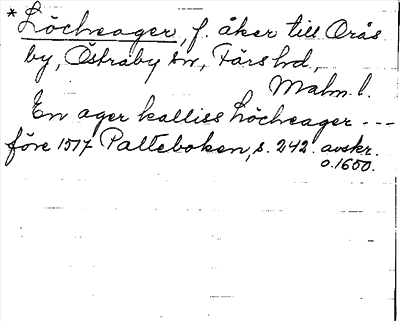 * Löcheager, f. åker till Orås
by, Östraby sn, Färs hd,
Malm. l.
En ager kalliss Löcheager ---
före 1517 Palteboken, s. 242. avskr.
o. 1650.